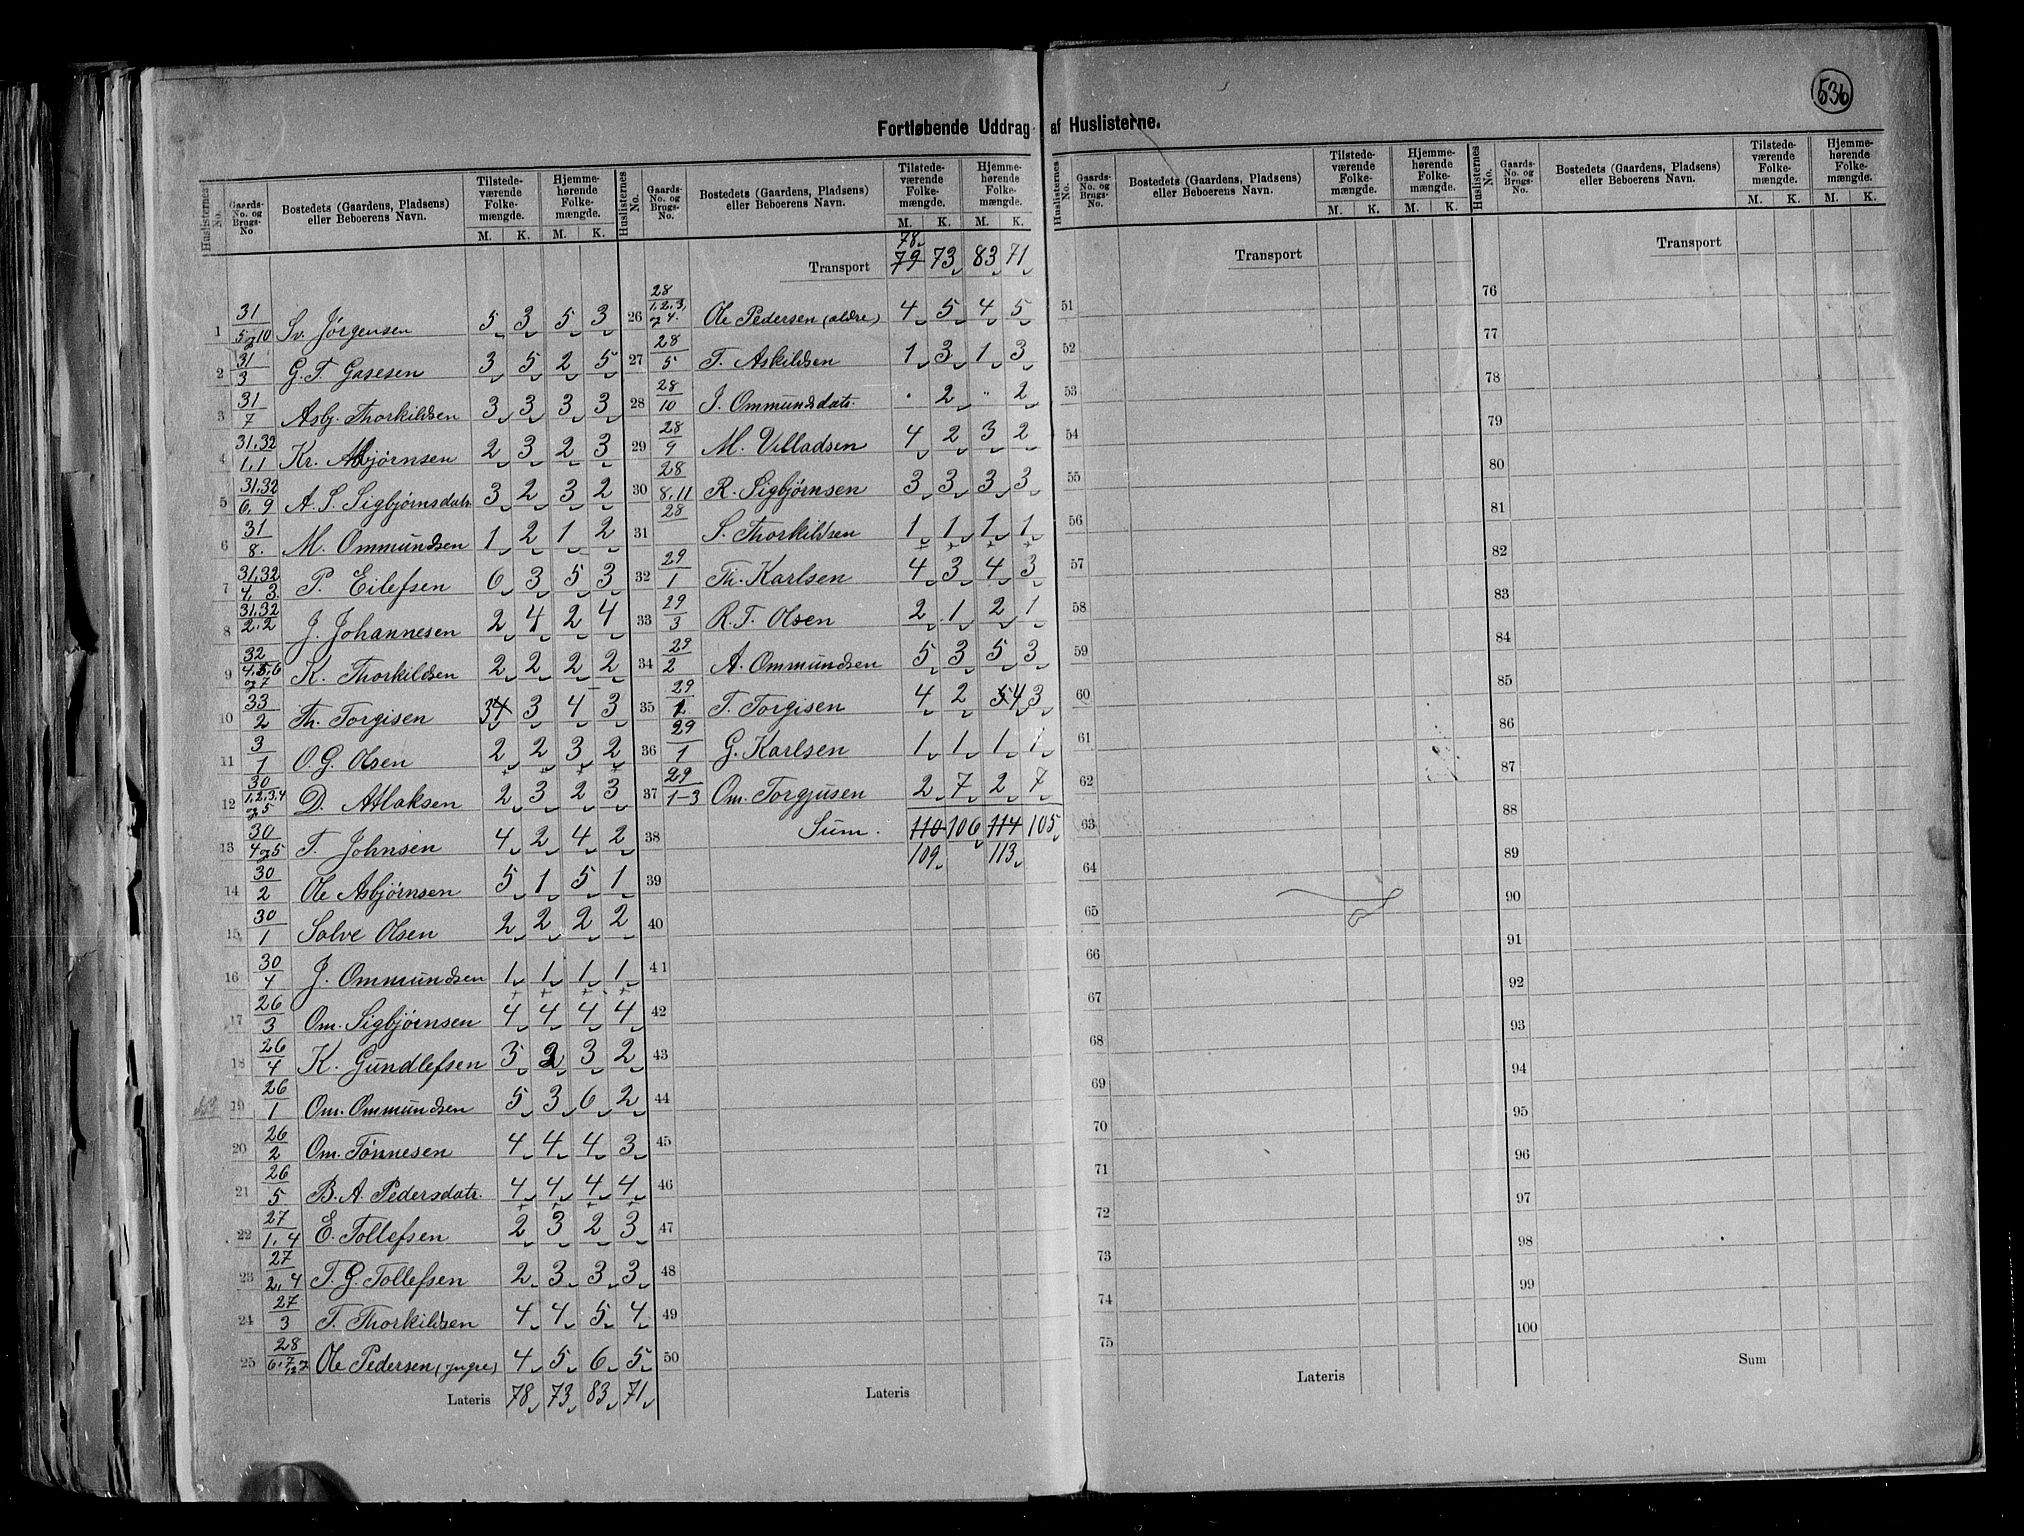 536
Fortløbende Uddrag af Huslisterne.
Huslisternes No. | Gaards-No. og Brugs-No. | Bostedets (Gaardens, Pladsens) eller Beboerens Navn. | Tilstedeværende Folkemængde. M. K. | Hjemmehørende Folkemængde. M. K.
1 31/5 og 10 Sv. Jørgensen 5 3 5 3
2 31/3 G. T. Gasesen 3 5 2 5
3 31/7 Asbj. Thorkildsen 3 3 3 3
4 31,32/1,1 Kr. Asbjørnsen 2 3 2 3
5 31,32/6,9 A. S. Sigbjørnsdatr. 3 2 3 2
6 31/8. M. Ommundsen 1 2 1 2
7 31,32/4,3. P. Eilefsen 6 3 5 3
8 31,32/2,2 J. Johannesen 2 4 2 4
9 32/4,5,6 og 7 K. Thorkildsen 2 2 2 2
10 33/2 Th. Torgisen 3 3 4 3
11 3/1 O. G. Olsen 2 2 3 2
12 30/1,2,3,4 og 5 D. Atlaksen 2 3 2 3
13 30/4 og 5 T. Johnsen 4 2 4 2
14 30/2 Ole Asbjørnsen 5 1 5 1
15 30/1 Salve Olsen 2 2 2 2
16 30/4 J. Ommundsen 1 1 1 1
17 26/3 Om. Sigbjørnsen 4 4 4 4
18 26/4 K. Gundlefsen 3 2 3 2
19 26/1 Om. Ommundsen 5 3 6 2
20 26/2 Om. Tønnesen 4 4 4 3
21 26/5 B. A. Pedersdatr. 4 4 4 4
22 27/1,4 E. Tollefsen 2 3 2 3
23 27/2,4 T. G. Tollefsen 2 3 3 3
24 27/3 T. Thorkildsen 4 4 5 4
25 28/6,7 Ole Pedersen (yngre) 4 5 6 5
Lateris 78 73 83 71
Huslisternes No. | Gaards-No. og Brugs-No. | Bostedets (Gaardens, Pladsens) eller Beboerens Navn. | Tilstedeværende Folkemængde. M. K. | Hjemmehørende Folkemængde. M. K.
78
Transport 79 73 83 71
26 28/1,2,3, og 4. Ole Pedersen (ældre) 4 5 4 5
27 28/5 T. Askildsen 1 3 1 3
28 28/10 J. Ommundsdatr. " 2 " 2
29 28/9 M. Villadsen 4 2 3 2
30 28/8,11 R. Sigbjørnsen 3 3 3 3
31 28 S. Thorkildsen 1 1 1 1
32 29/1 Th. Karlsen 4 3 4 3
33 29/3 R. T. Olsen 2 1 2 1
34 29/2 A. Ommundsen 5 3 5 3
35 29/1 T. Torgisen 4 2 5 4 3
36 29/1 G. Karlsen 1 1 1 1
37 29/1-3 Om. Torgjusen 2 7 2 7
38 Sum. 110 106 114 105
109 113
39
40
41
42
43
44
45
46
47
48
49
50
Lateris
Huslisternes No. | Gaards-No. og Brugs-No. | Bostedets (Gaardens, Pladsens) eller Beboerens Navn. | Tilstedeværende Folkemængde. M. K. | Hjemmehørende Folkemængde. M. K.
Transport
51
52
53
54
55
56
57
58
59
60
61
62
63
64
65
66
67
68
69
70
71
72
73
74
75
Lateris
Huslisternes No. | Gaards-No. og Brugs-No. | Bostedets (Gaardens, Pladsens) eller Beboerens Navn. | Tilstedeværende Folkemængde. M. K. | Hjemmehørende Folkemængde. M. K.
Transport
76
77
78
79
80
81
82
83
84
85
86
87
88
89
90
91
92
93
94
95
96
97
98
99
100
Sum